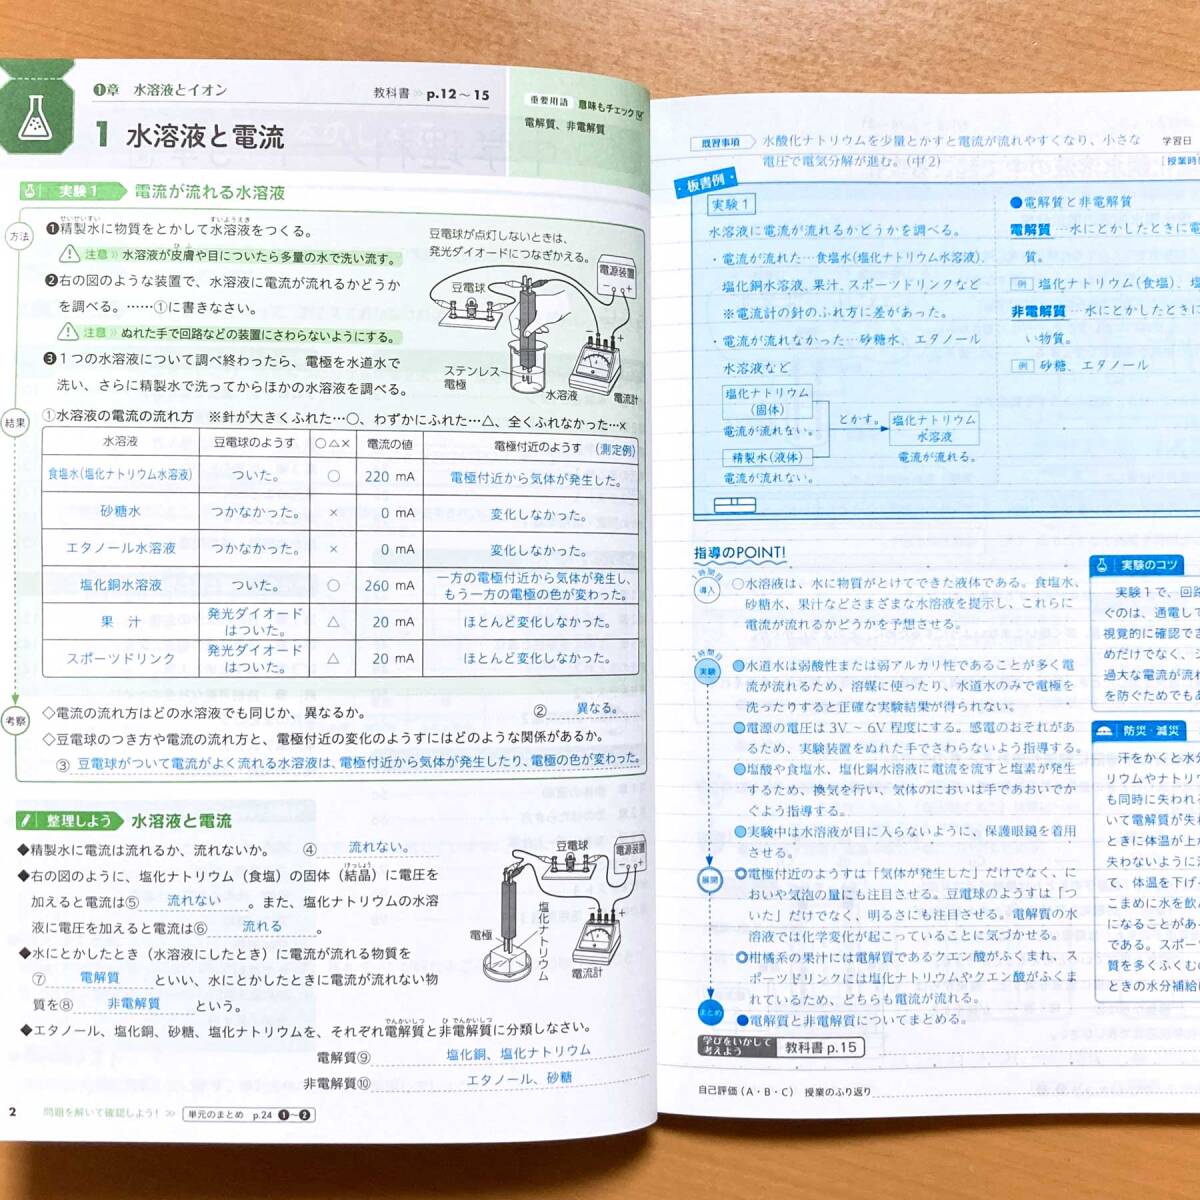 ❶章 水溶液とイオン
教科書 » p.12～15
重要用語 意味もチェック
電解質、非電解質
1 水溶液と電流
実験1 電流が流れる水溶液
方法
せいせいすい すいようえき
❶精製水に物質をとかして水溶液をつくる。
ひふ
注意 » 水溶液が皮膚や目についたら多量の水で洗い流す。
❷右の図のような装置で、水溶液に電流が流れるかどうか
を調べる。……①に書きなさい。
注意 » ぬれた手で回路などの装置にさわらないようにする。
❸1つの水溶液について調べ終わったら、電極を水道水で
洗い、さらに精製水で洗ってからほかの水溶液を調べる。
豆電球が点灯しないときは、
発光ダイオードにつなぎかえる。
電源装置
豆電球
ステンレス
電極
水溶液
電流計
結果
①水溶液の電流の流れ方 ※針が大きくふれた…○、わずかにふれた…△、全くふれなかった…×
水溶液 豆電球のようす ○△× 電流の値 電極付近のようす (測定例)
食塩水(塩化ナトリウム水溶液) ついた。 ○ 220 mA 電極付近から気体が発生した。
砂糖水 つかなかった。 × 0 mA 変化しなかった。
エタノール水溶液 つかなかった。 × 0 mA 変化しなかった。
塩化銅水溶液 ついた。 ○ 260 mA 一方の電極付近から気体が発生し、
もう一方の電極の色が変わった。
果 汁 発光ダイオード
はついた。 △ 20 mA ほとんど変化しなかった。
スポーツドリンク 発光ダイオード
はついた。 △ 20 mA ほとんど変化しなかった。
考察
◇電流の流れ方はどの水溶液でも同じか、異なるか。 ② 異なる。
◇豆電球のつき方や電流の流れ方と、電極付近の変化のようすにはどのような関係があるか。
③ 豆電球がついて電流がよく流れる水溶液は、電極付近から気体が発生したり、電極の色が変わった。
整理しよう 水溶液と電流
◆精製水に電流は流れるか、流れないか。 ④ 流れない。
けっしょう
◆右の図のように、塩化ナトリウム（食塩）の固体（結晶）に電圧を
加えると電流は⑤ 流れない 。また、塩化ナトリウムの水溶
液に電圧を加えると電流は⑥ 流れる 。
◆水にとかしたとき（水溶液にしたとき）に電流が流れる物質を
⑦ 電解質 といい、水にとかしたときに電流が流れない物
質を⑧ 非電解質 という。
でんかいしつ ひ でんかいしつ
◆エタノール、塩化銅、砂糖、塩化ナトリウムを、それぞれ電解質と非電解質に分類しなさい。
電解質⑨ 塩化銅、塩化ナトリウム
非電解質⑩ エタノール、砂糖
豆電球
電源装置
電極
塩化ナトリウム
電流計
2 問題を解いて確認しよう！ >> 単元のまとめ p.24 ❶～❷
既習事項 水酸化ナトリウムを少量とかすと電流が流れやすくなり、小さな
電圧で電気分解が進む。(中2)
学習日
授業時
板書例
実験1
水溶液に電流が流れるかどうかを調べる。
・電流が流れた…食塩水(塩化ナトリウム水溶液)、
塩化銅水溶液、果汁、スポーツドリンクなど
※電流計の針のふれ方に差があった。
・電流が流れなかった…砂糖水、エタノール
水溶液など
塩化ナトリウム
(固体)
電流が流れない。
精製水(液体)
電流が流れない。
とかす。
塩化ナトリウム
水溶液
電流が流れる。
●電解質と非電解質
電解質…水にとかしたときに電
質。
例 塩化ナトリウム(食塩)、塩
非電解質…水にとかしたときに
い物質。
例 砂糖、エタノール
指導のPOINT!
1時間目
導入
○水溶液は、水に物質がとけてできた液体である。食塩水、
砂糖水、果汁などさまざまな水溶液を提示し、これらに
電流が流れるかどうかを予想させる。
2時間目
実験
●水道水は弱酸性または弱アルカリ性であることが多く電
流が流れるため、溶媒に使ったり、水道水のみで電極を
洗ったりすると正確な実験結果が得られない。
●電源の電圧は3V～6V程度にする。感電のおそれがあ
るため、実験装置をぬれた手でさわらないよう指導する。
●塩酸や食塩水、塩化銅水溶液に電流を流すと塩素が発生
するため、換気を行い、気体のにおいは手であおいでか
ぐよう指導する。
●実験中は水溶液が目に入らないように、保護眼鏡を着用
させる。
展開
○電極付近のようすは「気体が発生した」だけでなく、に
おいや気泡の量にも注目させる。豆電球のようすは「つ
いた」だけでなく、明るさにも注目させる。電解質の水
溶液では化学変化が起こっていることに気づかせる。
○柑橘系の果汁には電解質であるクエン酸がふくまれ、ス
ポーツドリンクには塩化ナトリウムやクエン酸がふくま
れているため、どちらも電流が流れる。
まとめ
●電解質と非電解質についてまとめる。
学びをいかして
考えよう 教科書 p.15
実験のコツ
実験1で、回路
ぐのは、通電して
視覚的に確認でき
めだけでなく、シ
過大な電流が流れ
を防ぐためでもあ
防災・減災
汗をかくと水分
リウムやナトリウ
も同時に失われ
いて電解質が失わ
ときに体温が上か
失わないように
て、体温を下げ
こまめに水を飲ん
になることがあ
である。スポー
質を多くふくむ
ときの水分補給に
自己評価（A・B・C） 授業のふり返り